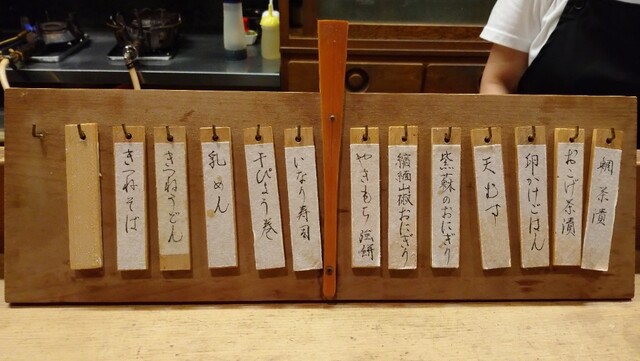 鯛茶漬
おこげ茶漬
卵かけごはん
天むす
紫蘇のおにぎり
縮緬山椒おにぎり
やきもち
いなり寿司
干ぴょう巻
乳めん
きつねうどん
きつねそば